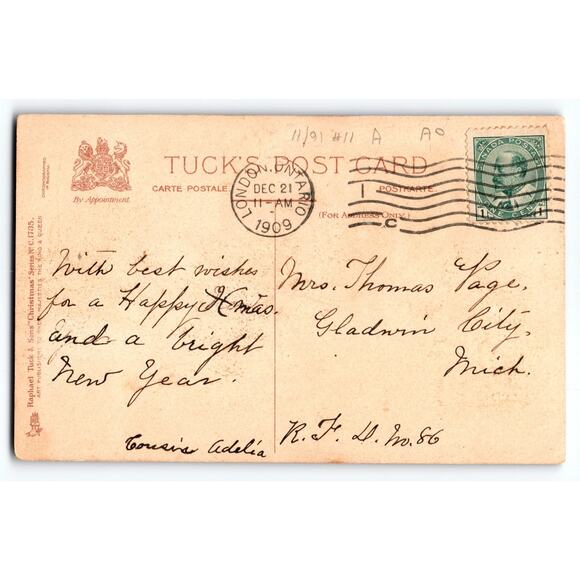 11/91 #11 A AO
TUCK'S POST CARD
CARTE POSTALE. POSTKARTE.
(FOR ADDRESS ONLY.)
By Appointment.
LONDON, ONTARIO
DEC 21
11-AM
1909
1
C
CANADA POSTAGE
1 ONE CENT 1
Raphael Tuck & Sons' "Christmas" Series No C. 1735.
ART PUBLISHERS TO THEIR MAJESTIES THE KING & QUEEN
With best wishes
for a Happy Xmas.
and a bright
New Year.
Cousin Adelia
Mrs. Thomas Page.
Gladwin City.
Mich.
R. F. D. No. 86